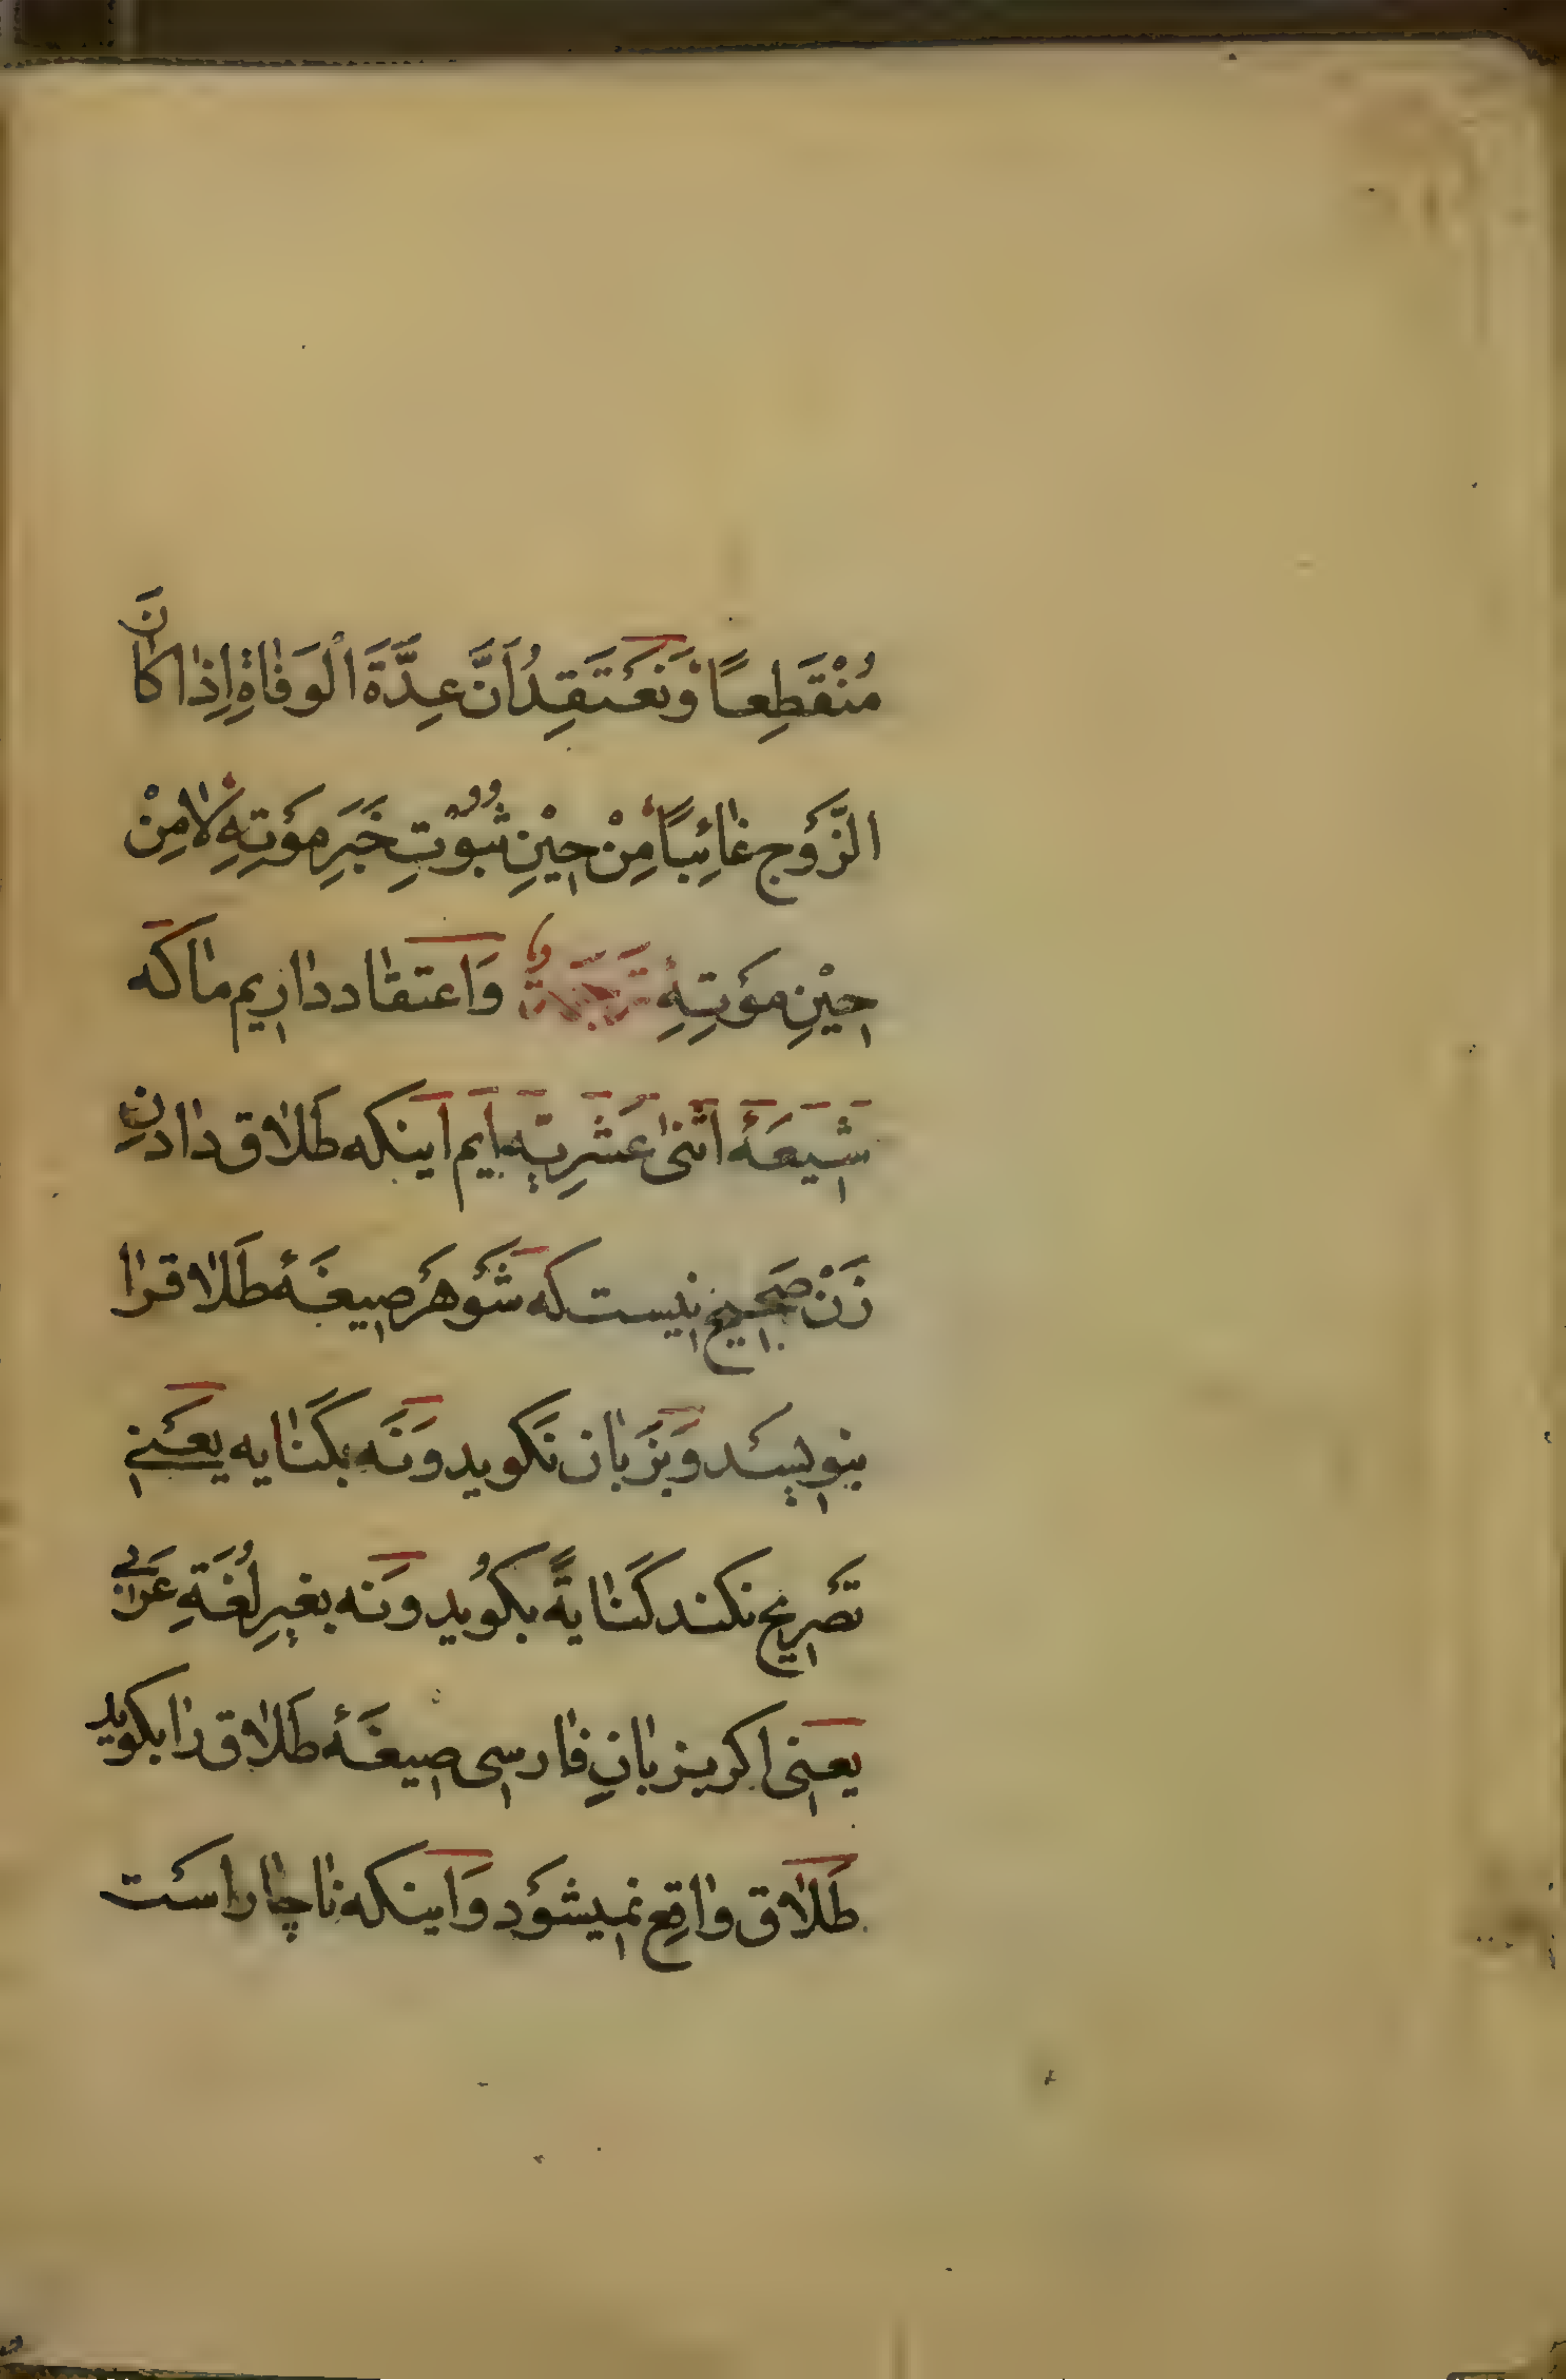 مُنْقَطِعاً وَنَعْتَقِدُ اَنَّ عِدَّةَ الْوَفاةِ اِذا كانَ
الزَّوْج غائِباً مِنْ حِيْنِ ثُبُوْتِ خَبَرِ مَوْتِهِ لا مِنْ
حِيْنِ مَوْتِهِ تَرْجَمَةٌ وَاعتقاد داریم ما که
شیعَهٔ اثنیٰ عَشَرِیّه ایم اینکه طَلاق دادنِ
زَنْ صَحیح نیست که شَوْهَرْ صیغَهٔ طَلاق را
بنویسَد وَبَزَبان نَکوید وَنَه بکَنایه یَعْنی
تَصْریح نکند کَنایةً بکوُید وَنه بغیرِ لُغَةِ عَرَبی
یعنی اکر بزبانِ فارسی صیغَهٔ طَلاق را بکوید
طَلاق واقِع نمیشَوَد وَاینکه ناچار اسْت